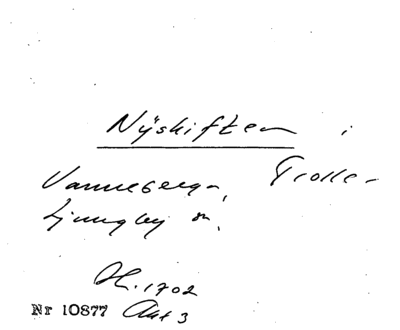 Nyskiften i
Vanneberga, Trolle-
Ljungby sn.
H. 1702
Nr 10877 Akt 3